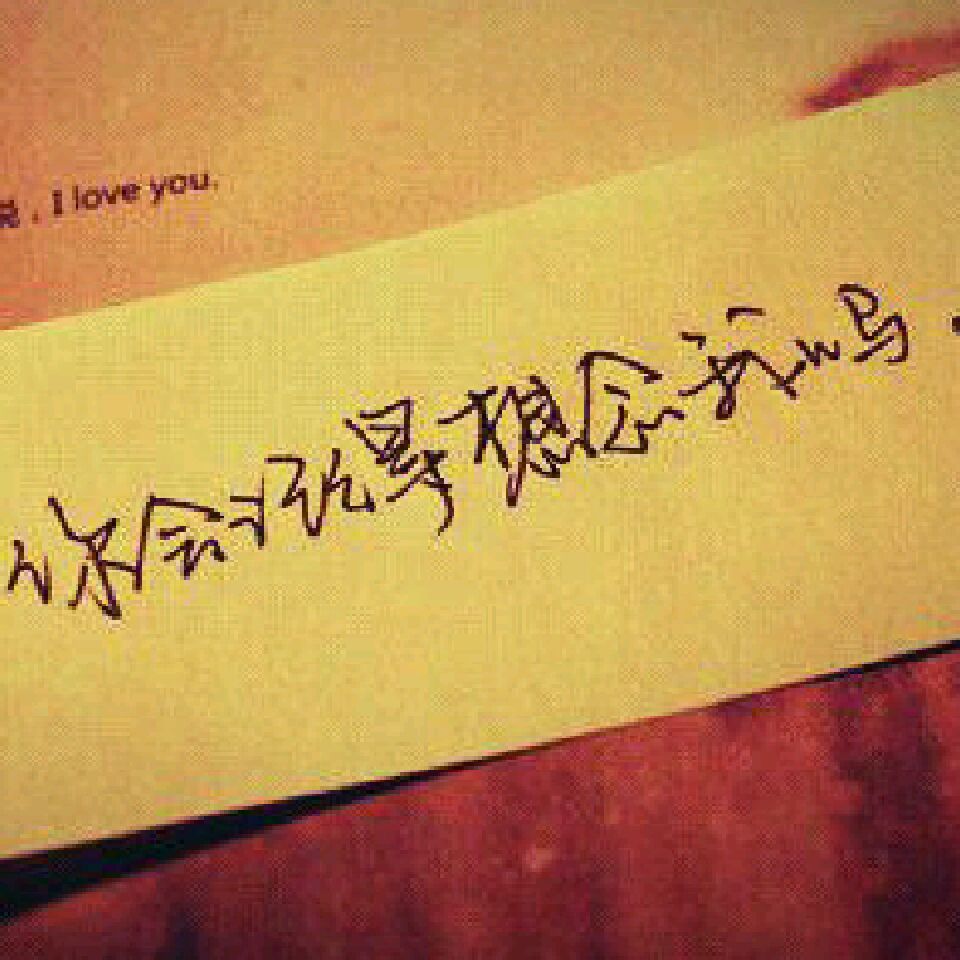 , I love you.
你会记得想念我吗.